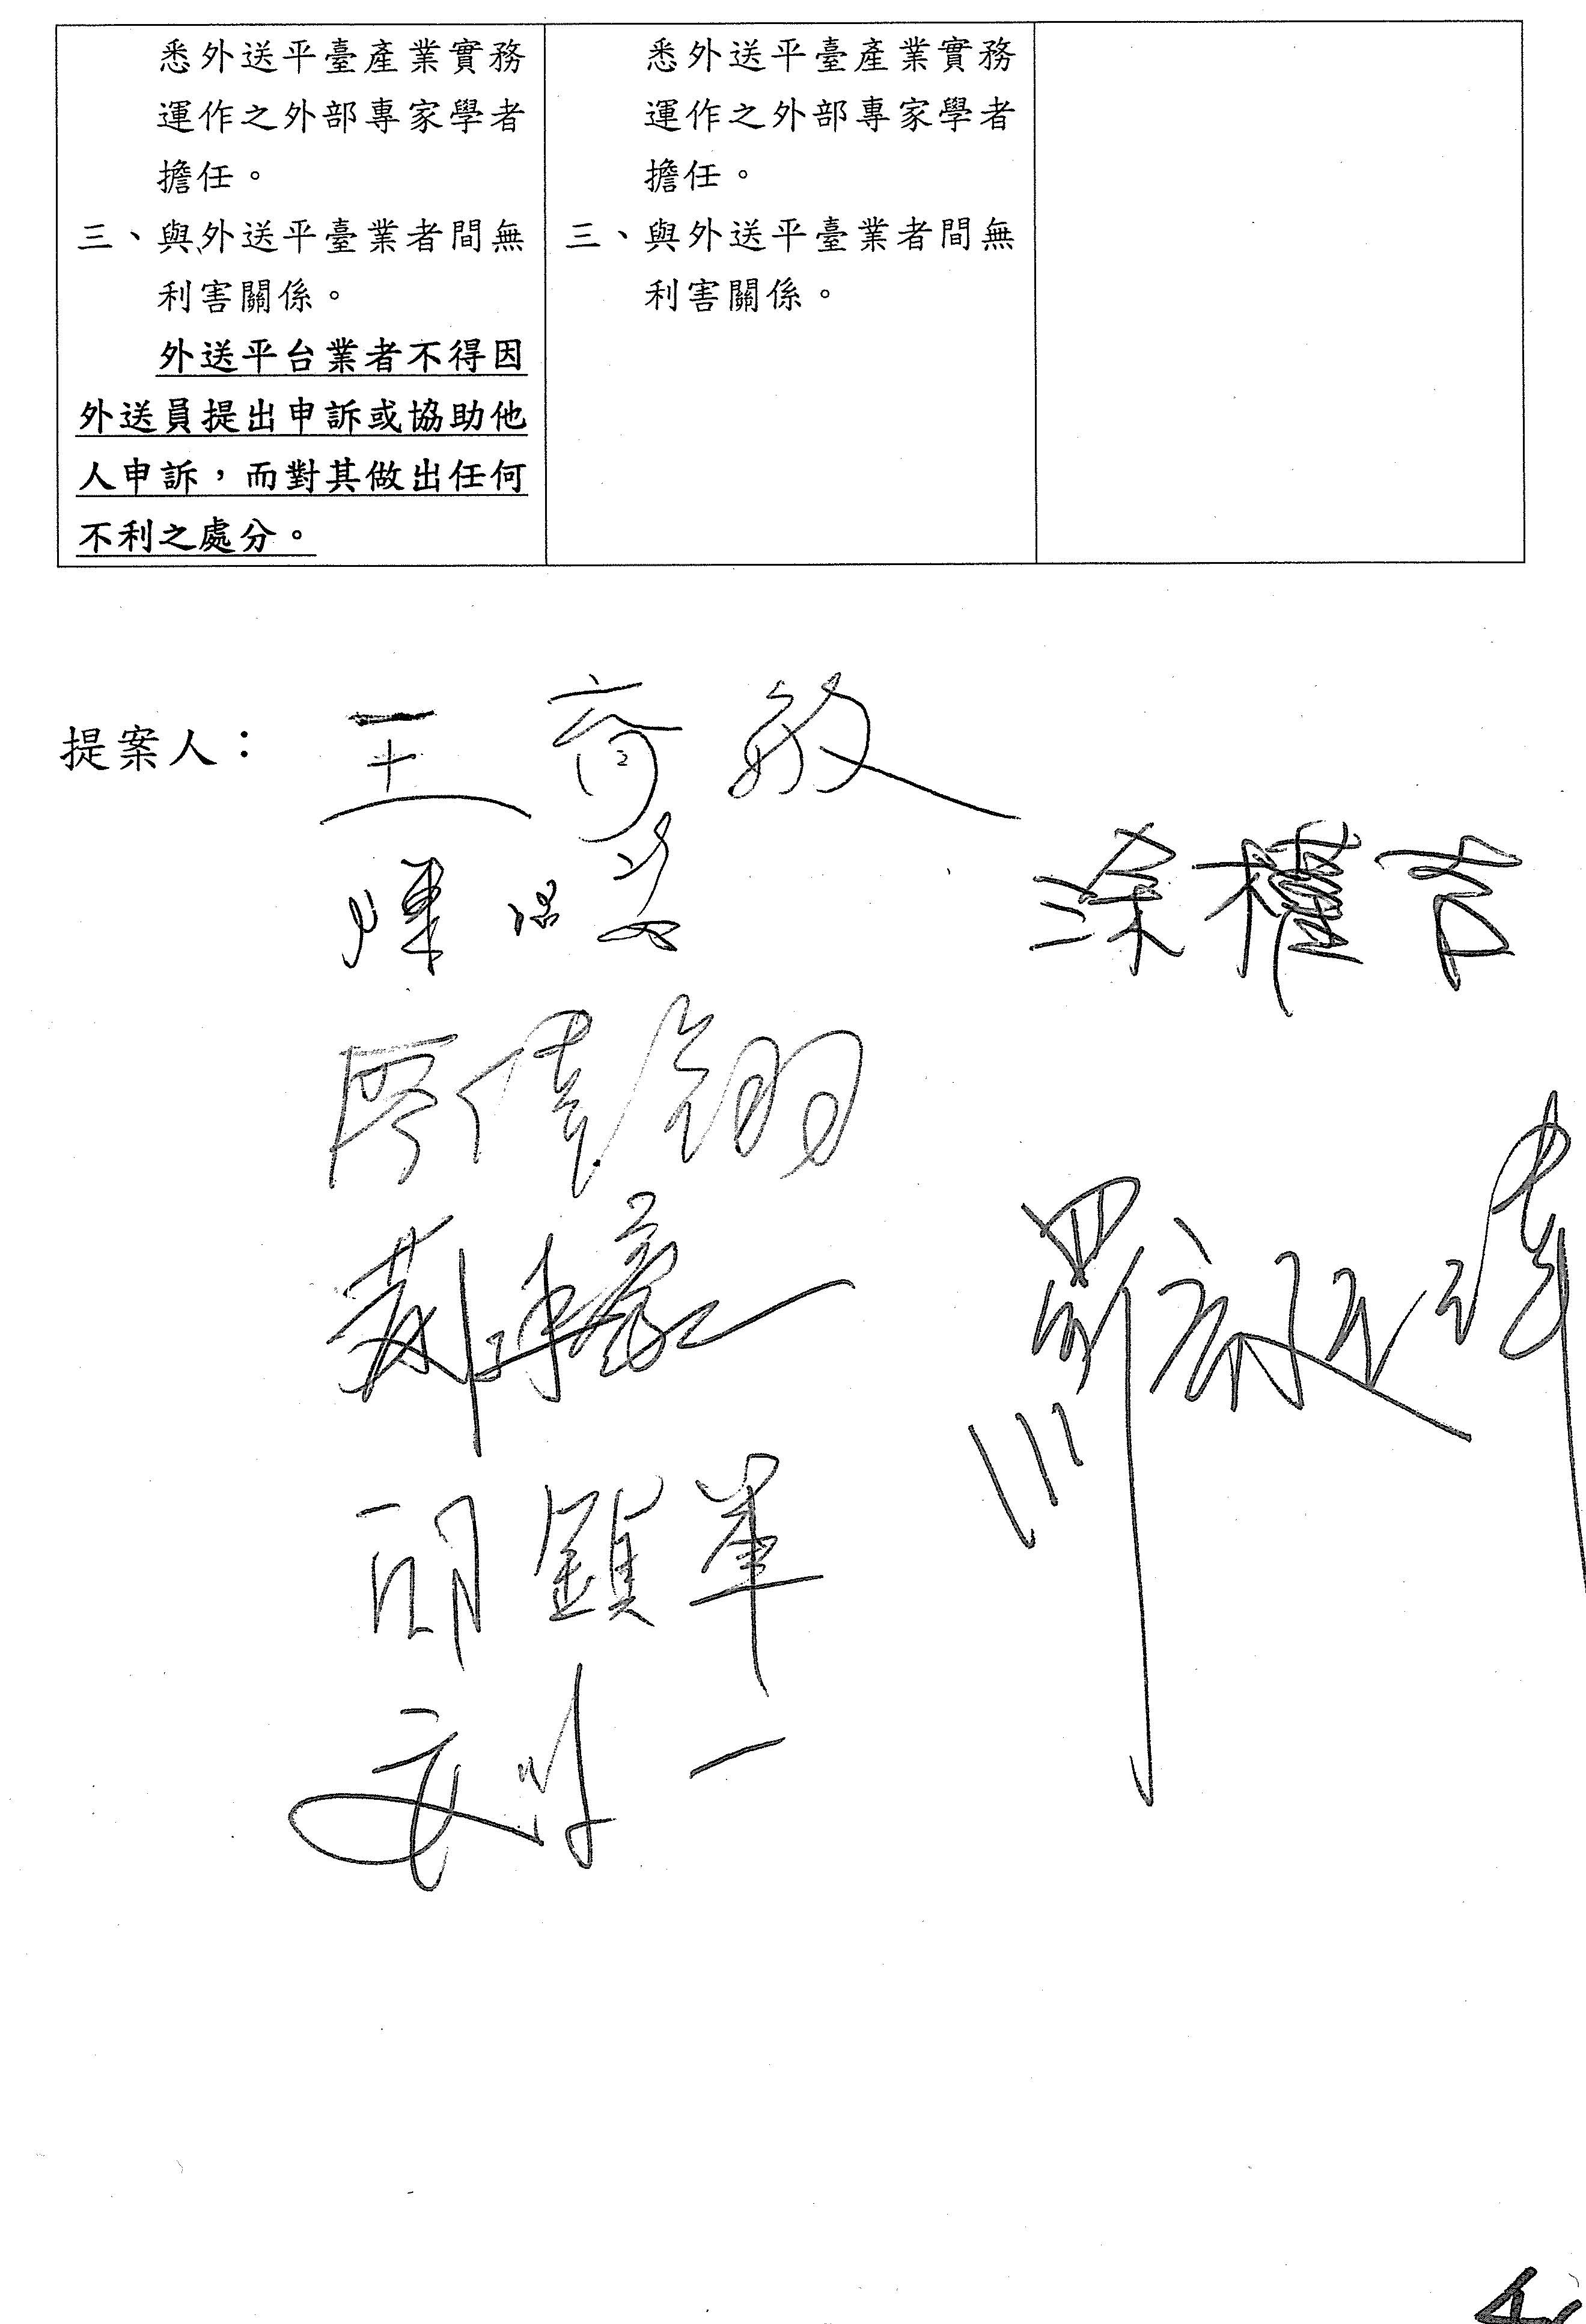 悉外送平臺產業實務
運作之外部專家學者
擔任。
三、與外送平臺業者間無
利害關係。
外送平台業者不得因
外送員提出申訴或協助他
人申訴，而對其做出任何
不利之處分。
悉外送平臺產業實務
運作之外部專家學者
擔任。
三、與外送平臺業者間無
利害關係。
提案人：
王育敏
涂權吉
廖偉翔
羅廷瑋
邱鎮軍